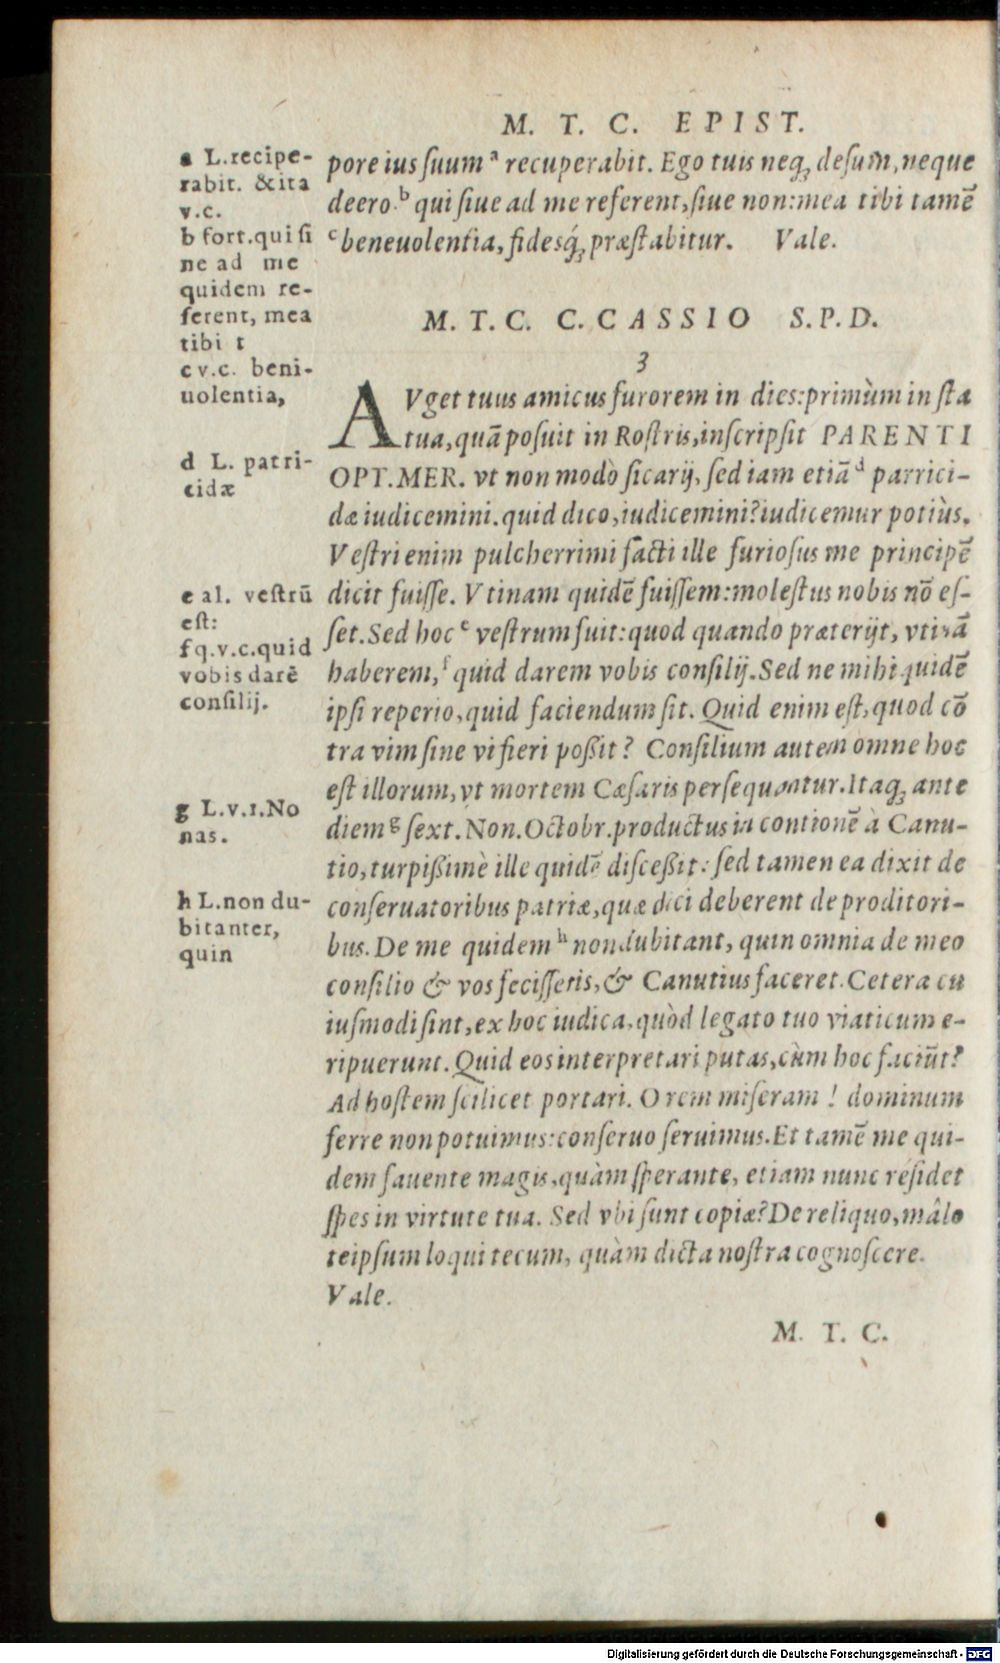 M. T. C. EPIST.
a L. recipe-
rabit. & ita
v.c.
b fort. qui si
ne ad me
quidem re-
ferent, mea
tibi t
c v.c. beni-
uolentia,
d L. patri-
cidæ
e al. vestrū
est:
f q. v.c. quid
vobis darē
consilij.
g L. v. 1. No
nas.
h L. non du-
bitanter,
quin
pore ius suum ᵃ recuperabit. Ego tuis neq; desum, neque
deero. ᵇ qui siue ad me referent, siue non: mea tibi tamē
ᶜ beneuolentia, fidesq́; præstabitur. Vale.
M. T. C. C. CASSIO S. P. D.
3
AVget tuus amicus furorem in dies: primùm in sta
tua, quā posuit in Rostris, inscripsit PARENTI
OPT. MER. vt non modò sicarij, sed iam etiā ᵈ parrici-
dæ iudicemini. quid dico, iudicemini? iudicemur potiùs.
Vestri enim pulcherrimi facti ille furiosus me principē
dicit fuisse. Vtinam quidē fuissem: molestus nobis nō es-
set. Sed hoc ᵉ vestrum fuit: quod quando præterijt, vtinā
haberem, ᶠ quid darem vobis consilij. Sed ne mihi quidē
ipsi reperio, quid faciendum sit. Quid enim est, quod cō
tra vim sine vi fieri poßit? Consilium autem omne hoc
est illorum, vt mortem Cæsaris persequantur. Itaq; ante
diem ᵍ sext. Non. Octobr. productus in contionē à Canu-
tio, turpißimè ille quidē discessit: sed tamen ea dixit de
conseruatoribus patriæ, quæ dici deberent de proditori-
bus. De me quidem ʰ non dubitant, quin omnia de meo
consilio & vos fecissetis, & Canutius faceret. Cetera cu
iusmodi sint, ex hoc iudica, quòd legato tuo viaticum e-
ripuerunt. Quid eos interpretari putas, cùm hoc faciūt?
Ad hostem scilicet portari. O rem miseram! dominum
ferre non potuimus: conseruo seruimus. Et tamē me qui-
dem fauente magis, quàm sperante, etiam nunc residet
spes in virtute tua. Sed vbi sunt copiæ? De reliquo, mâlo
teipsum loqui tecum, quàm dicta nostra cognoscere.
Vale.
M. T. C.
Digitalisierung gefördert durch die Deutsche Forschungsgemeinschaft - DFG